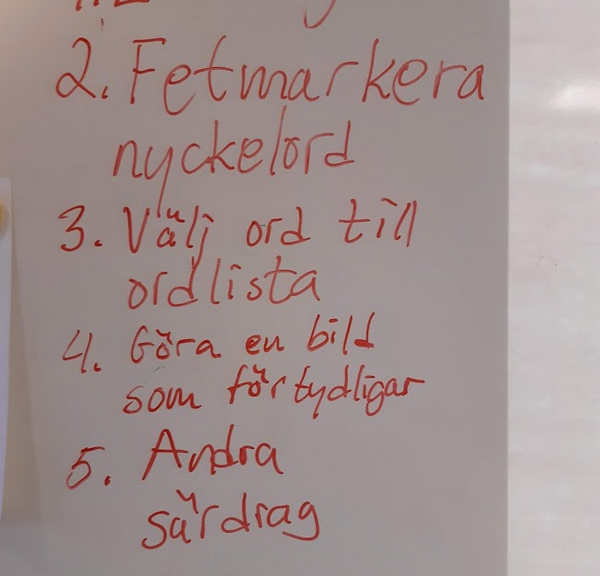 2. Fetmarkera
nyckelord
3. Välj ord till
ordlista
4. Göra en bild
som förtydligar
5. Andra
särdrag